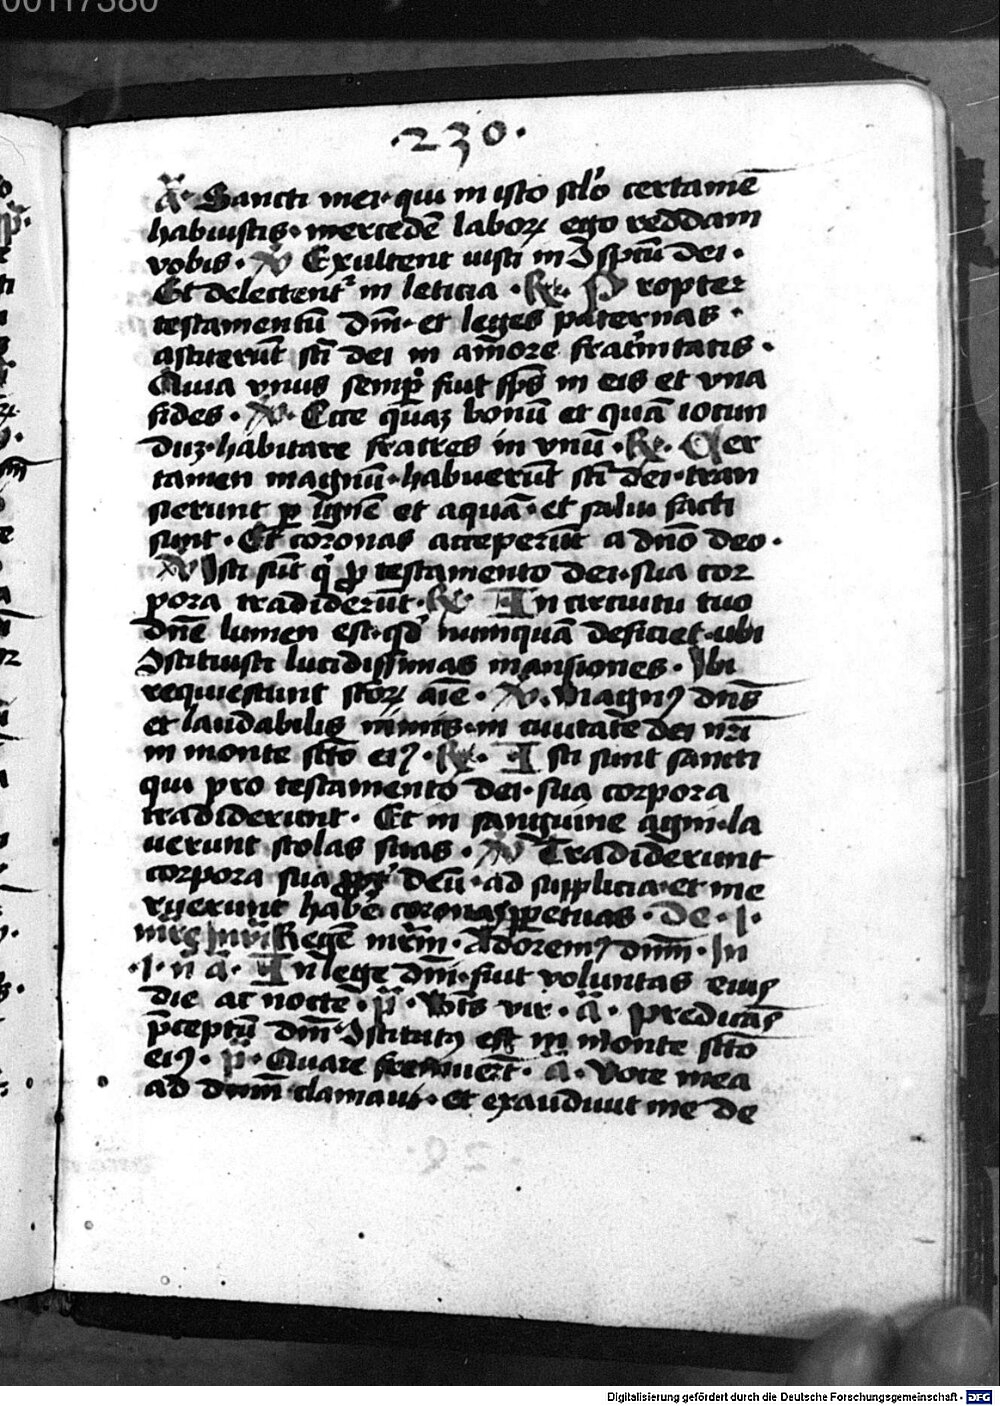 00117380
·230·
Aᷓ· Sancti mei· qui in isto sclo̕ certamē
habuistis· mercedē laborꝝ ego reddam
vobis · ℣ Exultent iusti in ɔspcū dei ·
Et delectent᷑ in leticia · ℟· Propter
testamentū dm̄· et leges paternas ·
astiterūt sc̄i dei in amore frat̕nitatis ·
Quia vnus semp̱ fuit sp̄s in eis et vna
fides · ℣· Ecce quaꝫ bonū et quā iocun
duꝫ· habitare fratres in vnū · ℟· Cer
tamen magnū· habuerūt sc̄i dei· tran
sierunt ꝑ ignē et aquā· et salui facti
sunt · Et coronas acceperūt a dn̄o deo ·
℣ Isti sūt qͥ ꝓ testamento dei· sua cor
pora tradiderūt · ℟ In circuitu tuo
dn̄e lumen est· qd̕ nunquā deficiet· ubi
ɔstituisti lucidissimas mansiones · Ibi
requiescunt sc̄orꝝ aīe · ℣· Magnꝰ dn̄s
et laudabilis nimis· in ciuitate dei nr̄i
in monte sc̄to eiꝰ · ℟· Isti sunt sancti
qui pro testamento dei· sua corpora
tradiderunt · Et in sanguine agni· la
uerunt stolas suas · ℣ Tradiderunt
corpora sua ꝓpt̕ deū· ad supplicia· et me
ruerunt habē coronas ꝑpetuas · De · I·
mr̄e Inui Regē mr̄m · Adoremꝰ dn̄m · In
·I· nᷓ aᷓ· In lege dn̄i· fuit voluntas eius
die ac nocte · pᷓ· Bt̄s vir · aᷓ· Predicās
p̄ceptū dn̄i ɔstitutꝰ est in monte sc̄to
eiꝰ · pᷓ· Quare fremuer̄t · aᷓ· Voce mea
ad dn̄m clamaui· et exaudiuit me de
Digitalisierung gefördert durch die Deutsche Forschungsgemeinschaft - DFG